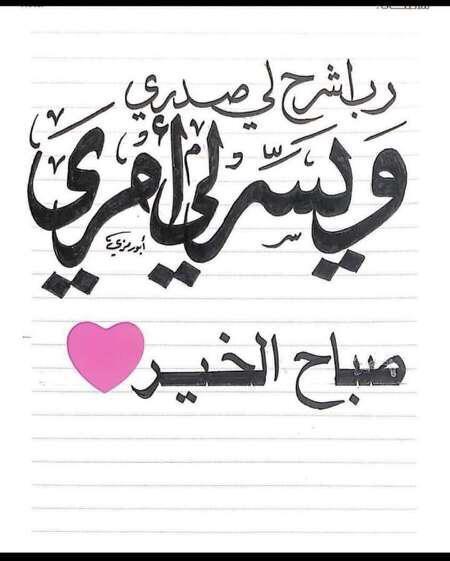 رب اشرح لي صدري
وَيَسِّرلي أمْرِي
أبورمزي
صباح الخير